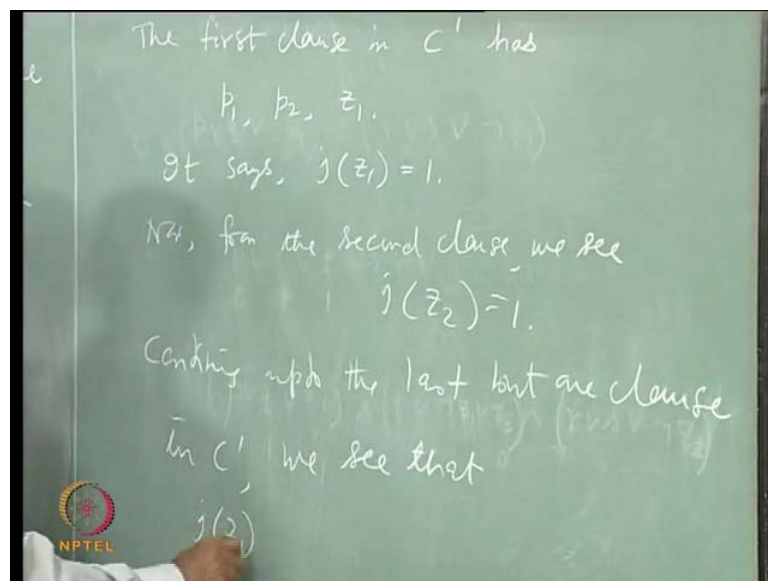 The first clause in C' has
p₁, p₂, z₁.
It says, j(z₁) = 1.
Now, from the second clause, we see
j(z₂) = 1.
Continuing upto the last but one clause
in C', we see that
j(z₁)
NPTEL